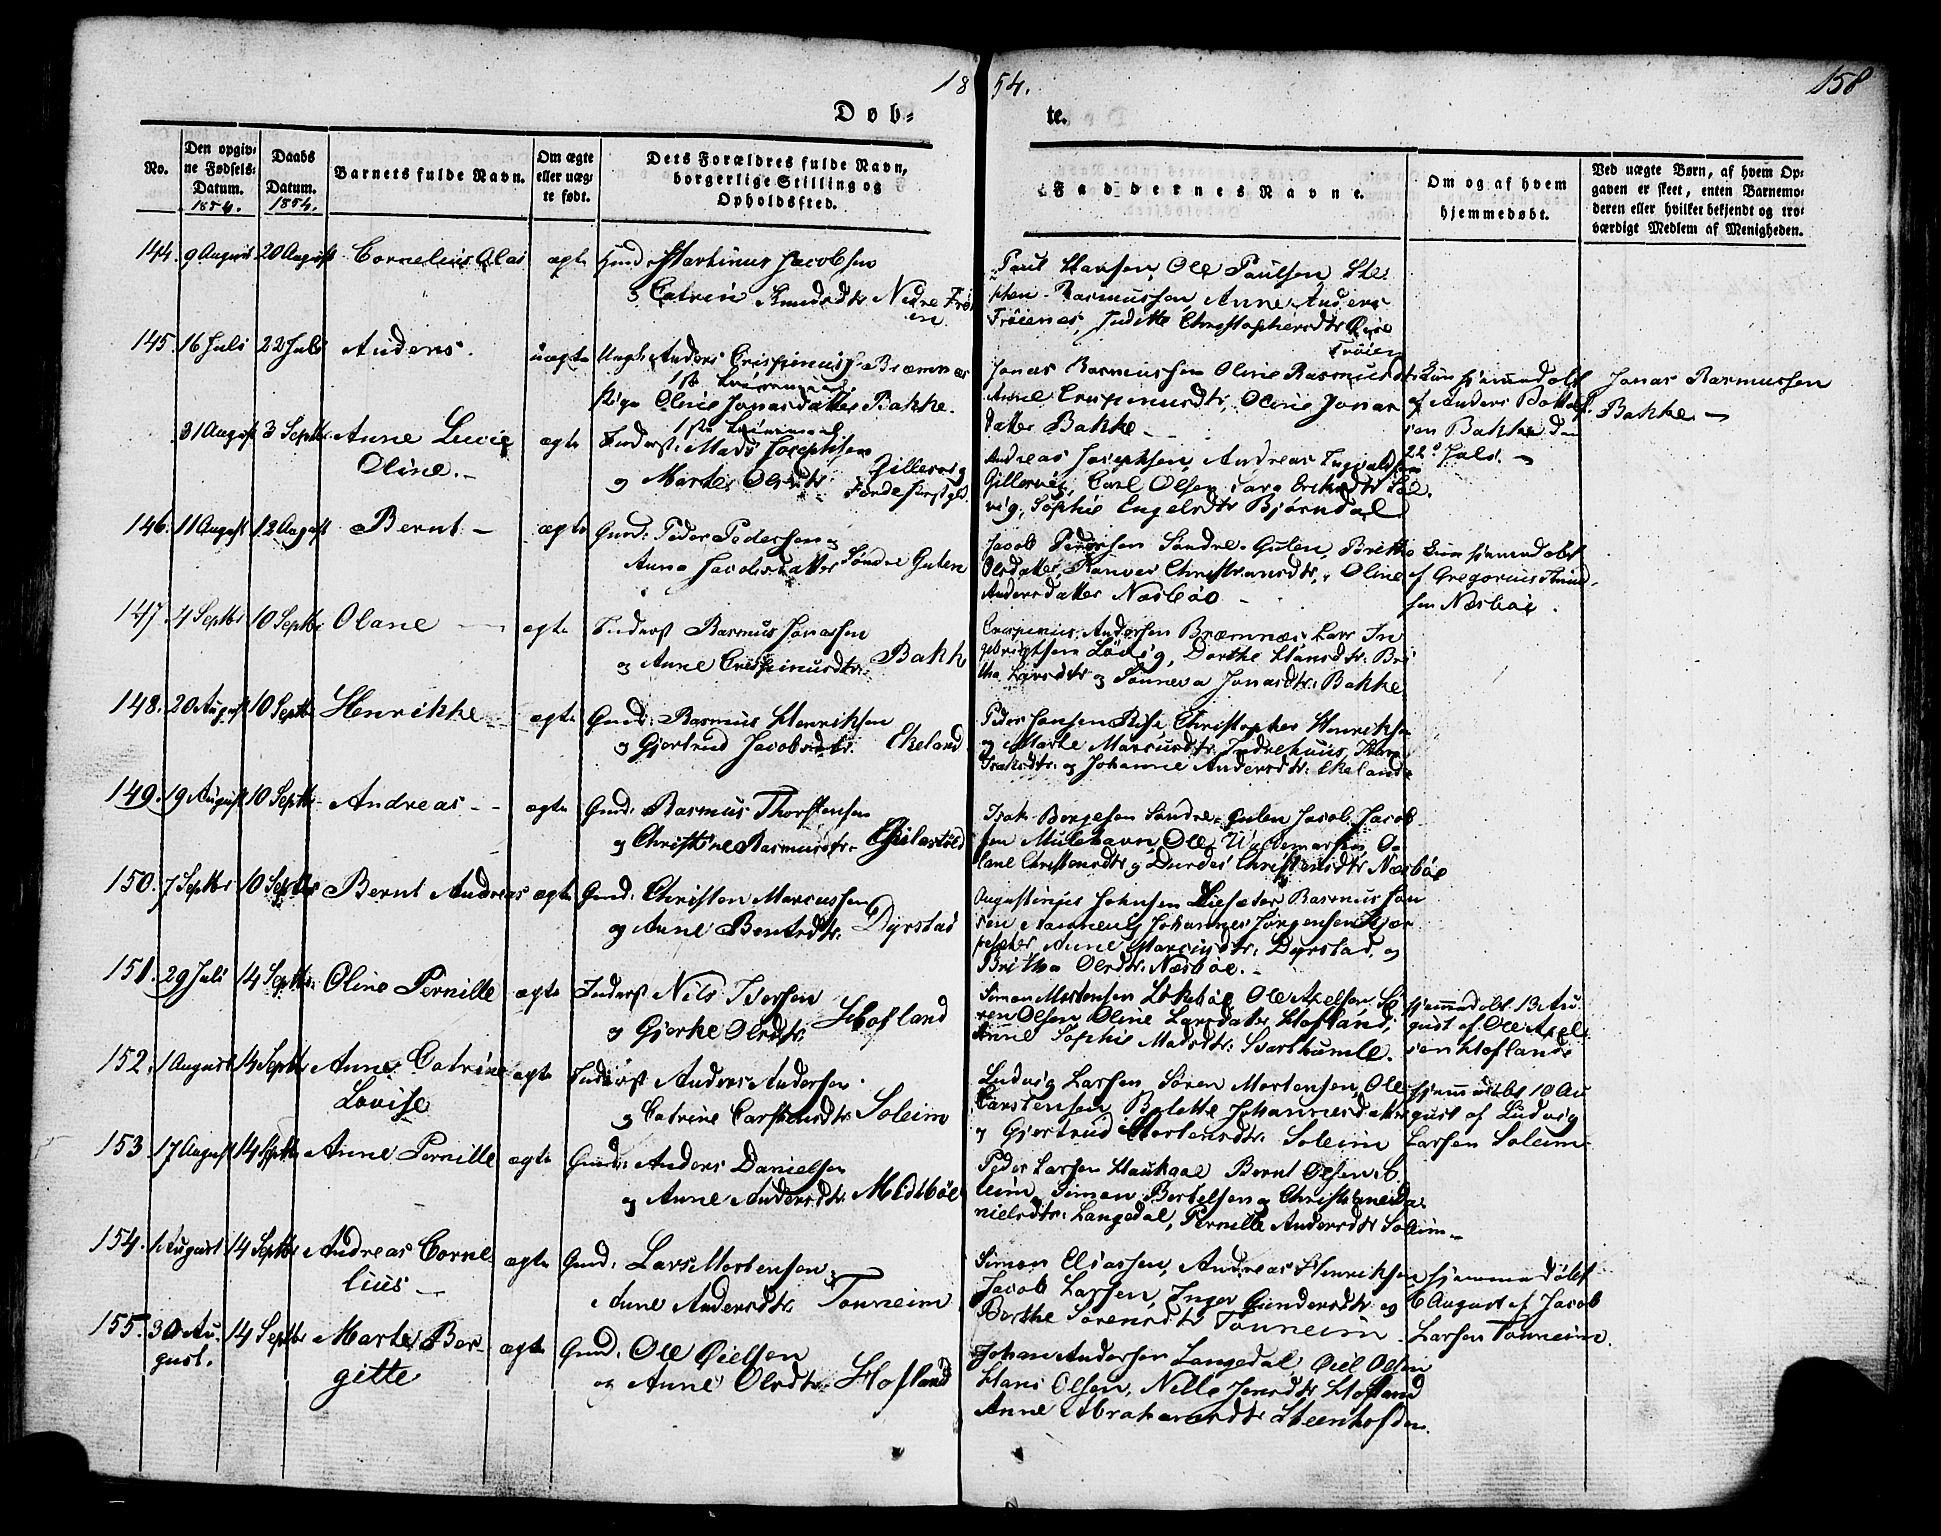 1854.
158
Døb-
te.
No.
Den opgiv-
ne Fødsels-
Datum.
1854.
Daabs
Datum.
1854.
Barnets fulde Navn.
Om ægte
eller uæg-
te født.
Dets Forældres fulde Navn,
borgerlige Stilling og
Opholdssted.
Faddernes Navne.
Om og af hvem
hjemmedøbt.
Ved uægte Børn, af hvem Op-
gaven er skeet, enten Barnemo-
deren eller hvilket bekjendt og tro-
værdigt Medlem af Menigheden.
144. 9 August 20 August Cornelius Olai ægte Gmd: Martinus Jacobsen
& Catrin Knudsdtr Nedre Frøi-
en
Poul Hansen, Ole Paulsen, Ste-
phen Rasmussen, Anne Anders
Frøienes, Juditte Christophersdtr Øvre
Frøien
145. 16 Juli 22 Juli Anders. uægte Ungk: Anders Crispinuss. Bræmnæs
1ste Leiermaal
Pige Oline Jonasdatter Bakke.
1ste Leiermaal
Jonas Rasmussen Oline Rasmusdtr
Anne Crispinusdtr, Oline Jonas
datter Bakke
hjemmedøbt
af Anders
sen Bakke den
22d Juli.
Jonas Rasmussen
Bakke
31 August 3 Septbr Anne Lucie
Oline. ægte Inderst: Mads Josephsen
og Marte Olsdtr Gillesvig
Førde Præstgld
Andreas Josephsen, Andreas
Gillesvig, Carl Olsen,
vig, Sophie Engelsdtr Bjørndal
146. 11 August 12 August Bernt ægte Gmd: Peder Pedersen og
Anna Jacobsdatter Søndre Gulen
Jacob Pedersen Søndre Gulen, Britha
Olsdatter, Ranvei Christiansdtr, Oline
Andersdatter Næsbøe
hjemmedøbt
af Gregorius
sen Næsbøe.
147. 4 Septbr 10 Septbr Olane ægte Inderst Rasmus Jonassen
og Anne Crispinusdtr: Bakke
Crispinus Andersen Bræmnæs, Lars In
gebrigtsen Løvig, Dorthe Hansdtr: Bri
tha Larsdtr og Sønneva Jonasdtr: Bakke
148. 20 August 10 Septbr Henrikke ægte Gmd: Rasmus Henriksen
og Gjertrud Jacobsdtr: Ekeland
Peder Jansen Riise, Christopher Henriksen
og Marte Marcusdtr: Indrehuus,
Isaksdtr: og Johanne Andersdtr: Ekeland
149. 19 August 10 Septbr Andreas ægte Gmd: Rasmus Thorstensen
og Christine Rasmusdtr.
Isak Børgesen Søndre Gulen Jacob Jacob-
sen Mulehavn, Ole Waldemarsen, O-
lane Christensdtr og Durdei Christensdtr Næsbøe
150. 7 Septbr 10 Septbr Bernt Andreas ægte Gmd: Christen Marcussen
og Anne Berntsdtr: Dyrstad
Augustinus Johnsen Liesæter Rasmus Jan
sen Nammen, Johannes Jørgensen Kjær
pesæter, Anne Marcusdtr: Dyrstad, og
Britha Olsdtr: Næsbøe.
151. 29 Juli 14 Septbr. Oline Pernille ægte Inderst Nils Iversen
og Gjerke Olsdtr. Hofland
Simon Mortensen Løkebøe Ole Axelsen, Sø
ren Olsen, Oline Larsdatter Hofland,
Anne Sophie Madsdtr: Svarthumle.
hjemmedøbt 13 Au-
gust af Ole Axel
sen Hofland
152. 1 August 14 Septbr Anne Catrine
Lovise ægte Inderst Anders Andersen
og Catrine Carstensdtr Soleim
Ludvig Larsen, Søren Mortensen, Ole
Carstensen, Bolette Johannesdatter
og Gjertrud Mortensdtr: Soleim
hjemmedøbt 10 Au
gust af Ludvig
Larsen Soleim
153 17 August 14 Septbr Anne Pernille ægte Gmd: Anders Danielsen
og Anne Andersdtr Midtbøe
Peder Larsen Haukaae Bernt Olsen So
leim, Simon Bertelsen og Christiane Da-
nielsdtr: Langedal, Pernille Andersdtr Soleim
154. 1 August 14 Septbr Andreas Corne
lius ægte Gmd: Lars Mortensen
Anne Andersdtr: Tonneim
Simon Eliassen, Andreas Henriksen
Jacob Larsen, Inger Gundersdtr: og
Berthe Sørensdtr: Tonneim
hjemmedøbt
6 August af Jacob
Larsen Tonneim.
155. 30 Au-
gust. 14 Septbr Marte Ber-
gitte ægte Gmd: Ole Øielsen
og Anne Olsdtr. Hofland
Johan Andersen Langedal, Øiel Olsen
Hans Olsen, Nille Jensdtr Hofland
Anne Abrahamsdtr Steenhofden.